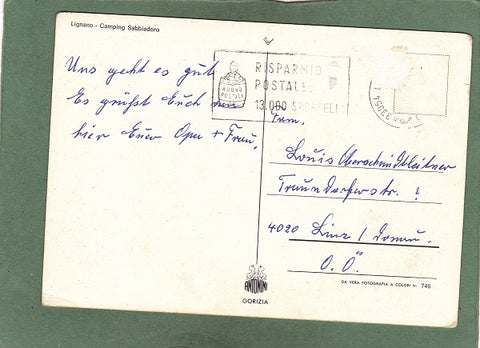 Lignano - Camping Sabbiadoro
Uns geht es gut
Es grüßt Euch von
hier Euer Opa + Frau.
RISPARMIO
POSTALE
13.000 SPORTELLI
BUONO
POSTALE
Fam.
Louis Oberschmidleitner
Traundorferstr.
4020 Linz / Donau.
O.Ö.
ANTONINI
GORIZIA
DA VERA FOTOGRAFIA A COLORI N. 746
33054